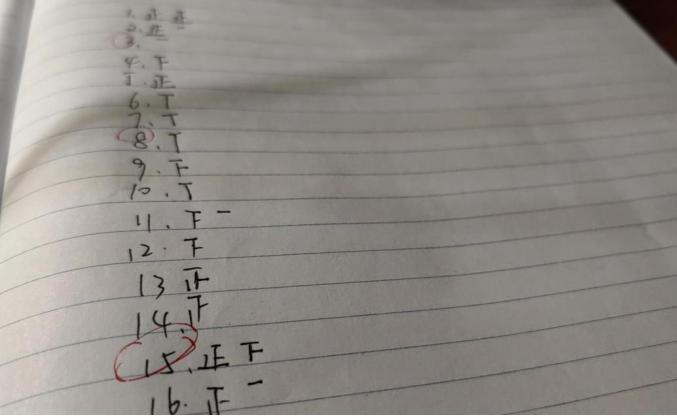 1. 正 正
2. 正 一
3.
4. 下
5. 正
6. T
7. T
8. T
9. 下
10. T
11. 下 一
12. 下
13 正
14. 正
15. 正 下
16. 正 一